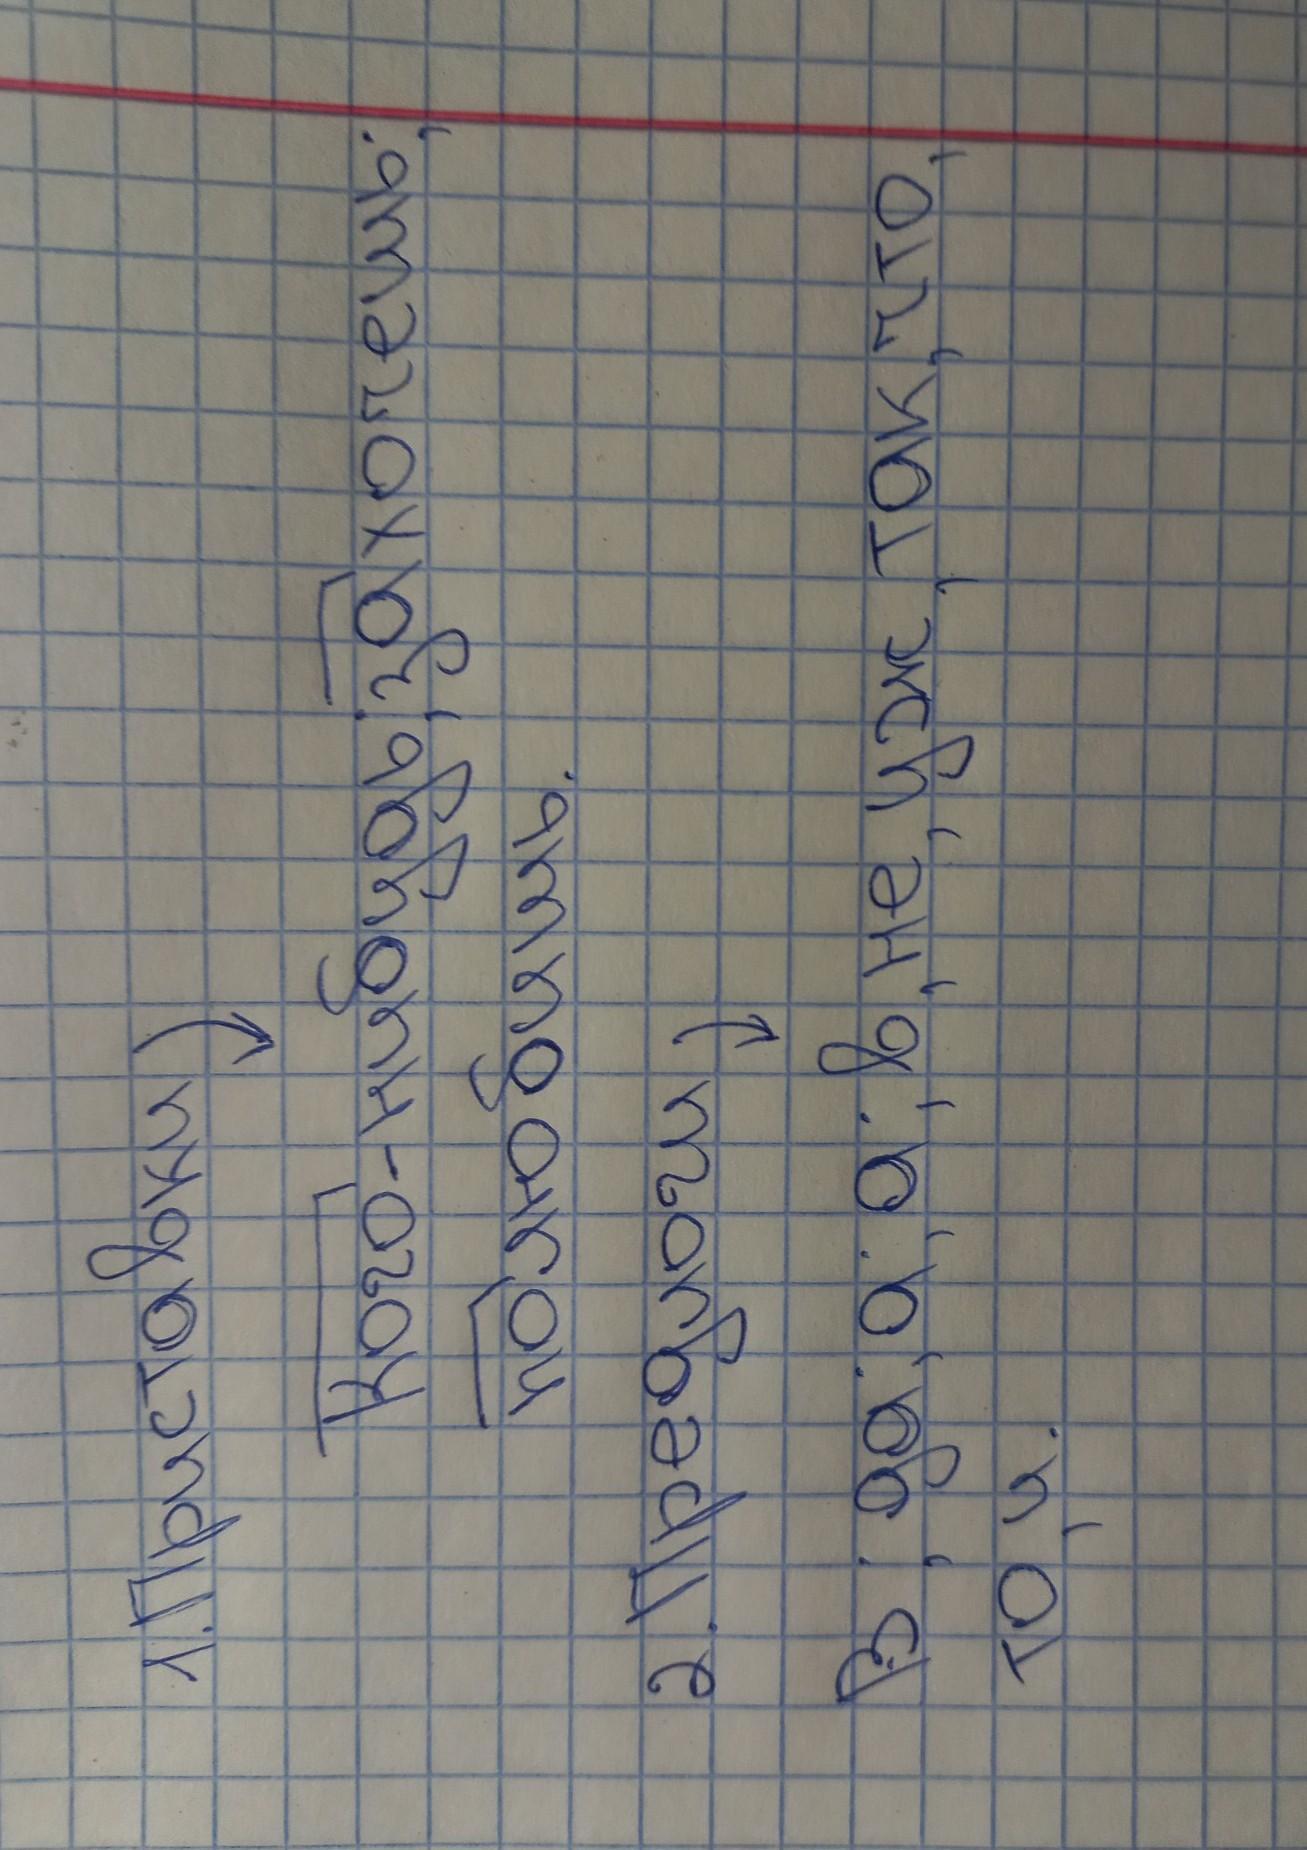 1. Приставки
Кого-нибудь; захотешь;
полюбишь.
2. Предлоги
В; да; а; а; в, не, уж, так, что,
то, и.